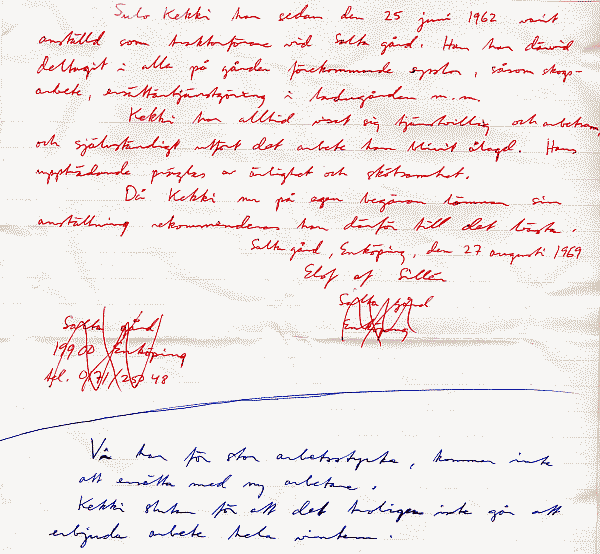 Sulo Kekki har sedan den 25 juni 1962 varit
anställd som traktorförare vid Salta gård. Han har därvid
deltagit i alla på gården förekommande sysslor, såsom skogs-
arbete, ersättartjänstgöring i ladugården m.m.
Kekki har alltid visat sig tjänstvillig och arbetsam,
och självständigt utfört det arbete han blivit ålagd. Hans
uppträdande präglas av ärlighet och skötsamhet.
Då Kekki nu på egen begäran lämnar sin
anställning rekommenderas han därför till det bästa.
Salta gård, Enköping, den 27 augusti 1969
Elof af Sillén
Salta gård
Enköping
Salta gård
199 00 Enköping
tel. 0171/250 48
Vi har för stor arbetsstyrka, kommer inte
att ersätta med ny arbetare.
Kekki slutar för att det troligen inte går att
erbjuda arbete hela vintern.